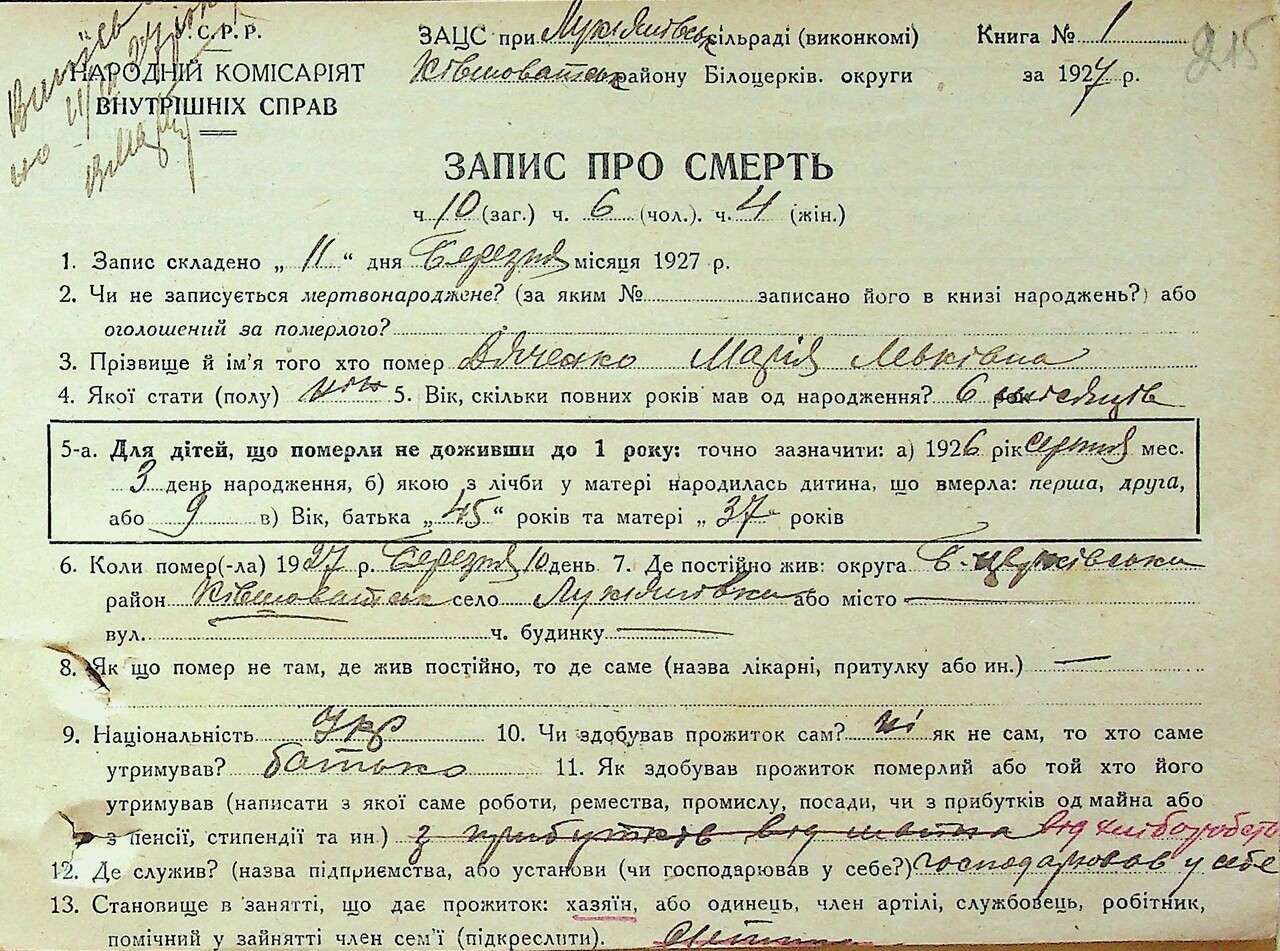 С. Р. Р.
НАРОДНІЙ КОМІСАРІЯТ
ВНУТРІШНІХ СПРАВ
ЗАЦС при Лукіянівськ сільраді (виконкомі)
Ківшоватськ району Білоцерків. округи
Книга № 1
за 1927 р.
215
ЗАПИС ПРО СМЕРТЬ
ч 10 (заг.) ч. 6 (чол.). ч. 4 (жін.)
1. Запис складено „ 11 “ дня Березня місяця 1927 р.
2. Чи не записується мертвонароджене? (за яким № записано його в книзі народжень?) або
оголошений за померлого?
3. Прізвище й ім'я того хто помер Дяченко Марія Левківна
4. Якої стати (полу) жін 5. Вік, скільки повних років мав од народження? 6 місяців
5-а. Для дітей, що померли не доживши до 1 року: точно зазначити: а) 1926 рік серпня мес.
3 день народження, б) якою з лічби у матері народилась дитина, що вмерла: перша, друга,
або 9 в) Вік, батька „ 45 “ років та матері „ 37 “ років
6. Коли помер(-ла) 1927 р. Березня 10 день 7. Де постійно жив: округа Б-церківська
район Ківшоватськ село Лукіянівка або місто —
вул. ч. будинку —
8. Як що помер не там, де жив постійно, то де саме (назва лікарні, притулку або ин.) —
9. Національність Укр 10. Чи здобував прожиток сам? ні як не сам, то хто саме
утримував? батько 11. Як здобував прожиток померлий або той хто його
утримував (написати з якої саме роботи, ремества, промислу, посади, чи з прибутків од майна або
з пенсії, стипендії та ин) з прибутків від майна від хліборобства
12. Де служив? (назва підприємства, або установи (чи господарював у себе?) господарював у себе
13. Становище в занятті, що дає прожиток: хазяїн, або одинець, член артілі, службовець, робітник,
помічний у зайнятті член сем'ї (підкреслити).